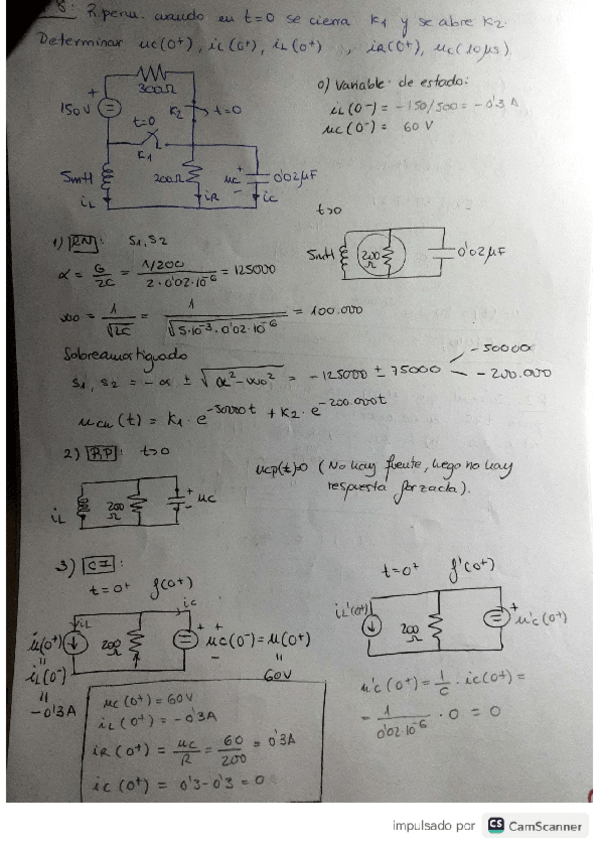 8: R.perm. cuando en t=0 se cierra K1 y se abre K2.
Determinar uc(0+), ic(0+), iL(0+), iR(0+), uc(10μs).
300Ω
150V
K2
t=0
t=0
K1
5mH
200Ω
uc
0'02μF
iL
iR
ic
0) Variable de estado:
iL(0-) = -150/500 = -0'3 A
uc(0-) = 60 V
t>0
5mH
200 Ω
0'02μF
1) RN: S1, S2
α = G/2C = 1/200 / 2·0'02·10^-6 = 125000
ωo = 1/√LC = 1/√5·10^-3·0'02·10^-6 = 100.000
Sobreamortiguado
S1, S2 = -α ± √α²-ωo² = -125000 ± 75000
-50000
-200.000
ucn(t) = K1·e^-50000t + K2·e^-200.000t
2) RP: t>0
ucp(t)=0 (No hay fuente, luego no hay
respuesta forzada).
iL
200 Ω
uc
3) CI:
t=0+ f(0+)
iL
ic
iL(0+)
200Ω
uc(0-)=u(0+)
"
60V
iL(0-)
"
-0'3A
uc(0+) = 60V
iL(0+) = -0'3A
iR(0+) = uc/R = 60/200 = 0'3A
ic(0+) = 0'3-0'3 = 0
t=0+ f'(0+)
iL'(0+)
200 Ω
u'c(0+)
u'c(0+) = 1/C · ic(0+) =
- 1/0'02·10^-6 · 0 = 0
impulsado por CS CamScanner